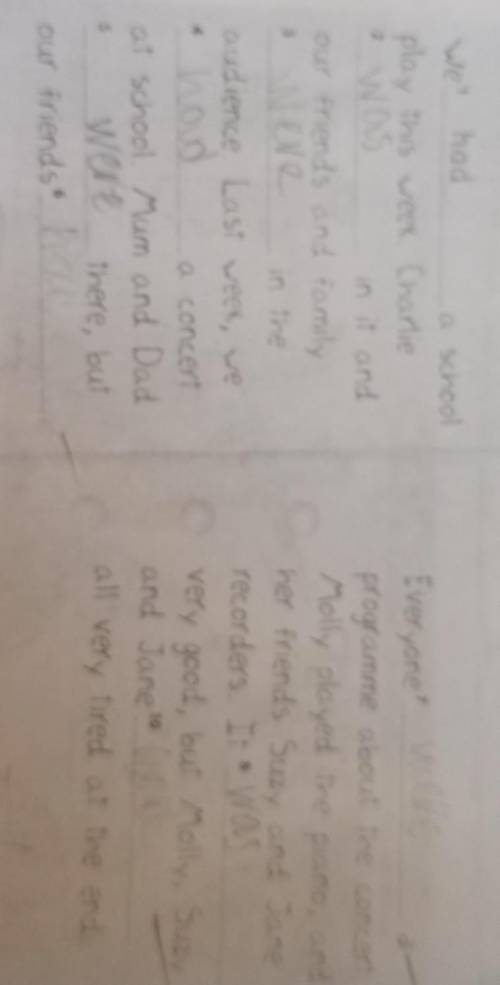 We¹ had a school
play this week. Charlie
² was in it and
our friends and family
³ were in the
audience. Last week, we
⁴ had a concert
at school. Mum and Dad
⁵ were there, but
our friends⁶
Everyone⁷ were a
programme about the concert.
Molly played the piano, and
her friends Suzy and Jane
recorders. It ⁹ was
very good, but Molly, Suzy
and Jane¹⁰
all very tired at the end.